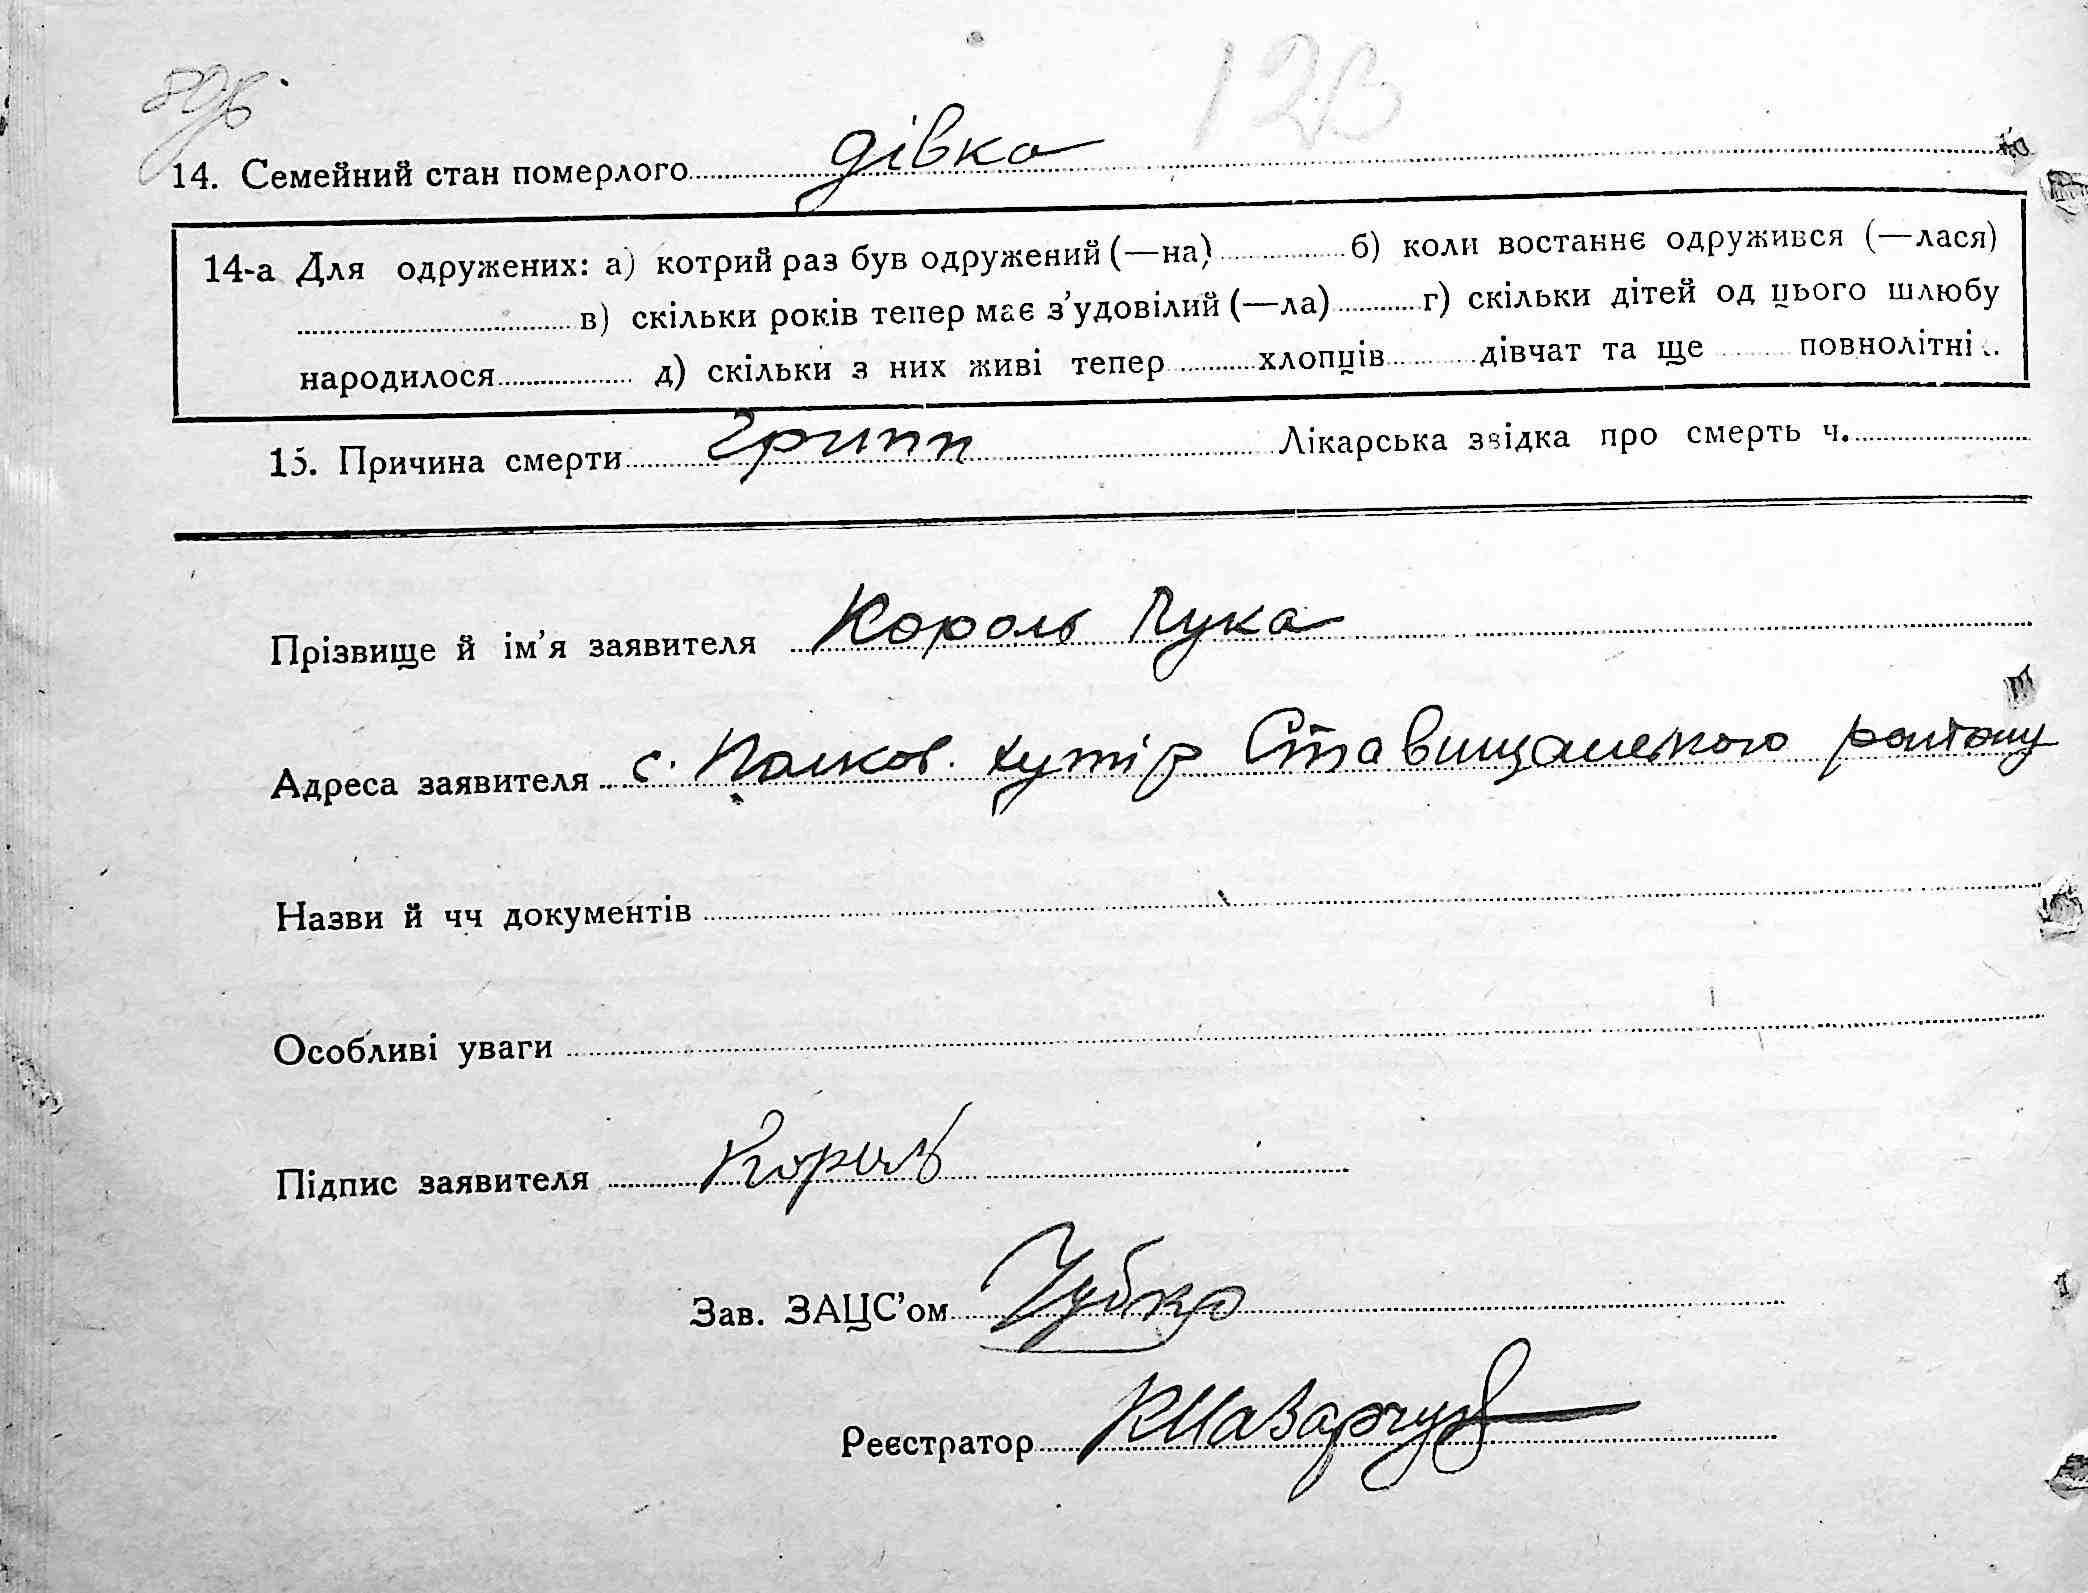 12в
14. Семейний стан померлого дівка
14-а Для одружених: а) котрий раз був одружений (—на) б) коли востаннє одружився (—лася)
в) скільки років тепер має з’удовілий (—ла) г) скільки дітей од цього шлюбу
народилося д) скільки з них живі тепер хлопців дівчат та ще повнолітні
15. Причина смерти Грипп Лікарська звідка про смерть ч.
Прізвище й ім’я заявителя Король Лука
Адреса заявителя с. Полков. хутір Ставищанського району
Назви й чч документів
Особливі уваги
Підпис заявителя Король
Зав. ЗАЦС’ом
Реєстратор КНазарчук